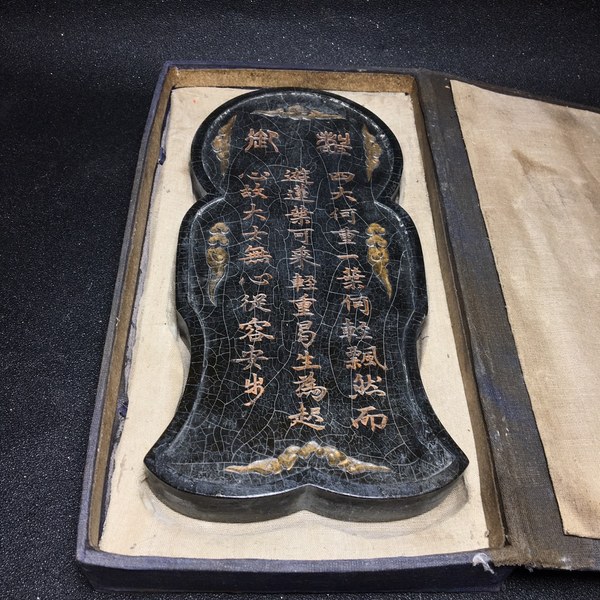 御製
四大何重一葉何輕飄然而
遊蓮葉可乘輕重曷生為起
心故大士無心從容安步